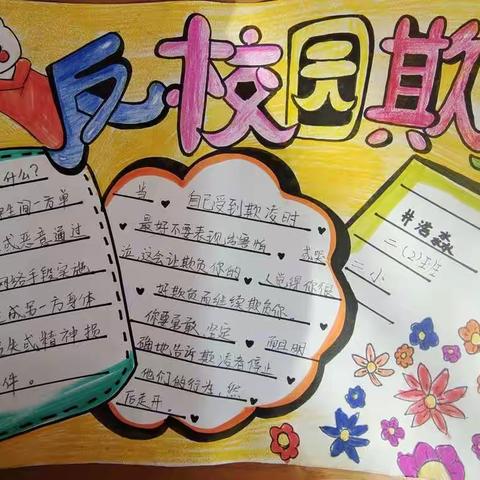 反校园欺
什么?
生间一方单
或恶意通过
网络手段实施
成另一方身体
失或精神损
件。
当 自己受到欺凌时
最好不要表现出害怕 或哭
泣 这会让欺负你的 人觉得你很
好欺负而继续欺负你
你要勇敢 坚定 而且明
确地告诉欺凌者停止
他们的行为, 然
后走开.
二小
二(2)班